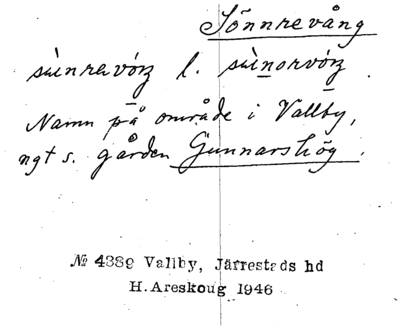 Sönnrevång
sùinrevórʒ l. sùinorvórʒ.
Namn på område i Vallby,
ngt s. gården Gunnarshög.
№ 4389 Vallby, Järrestads hd
H. Areskoug 1946